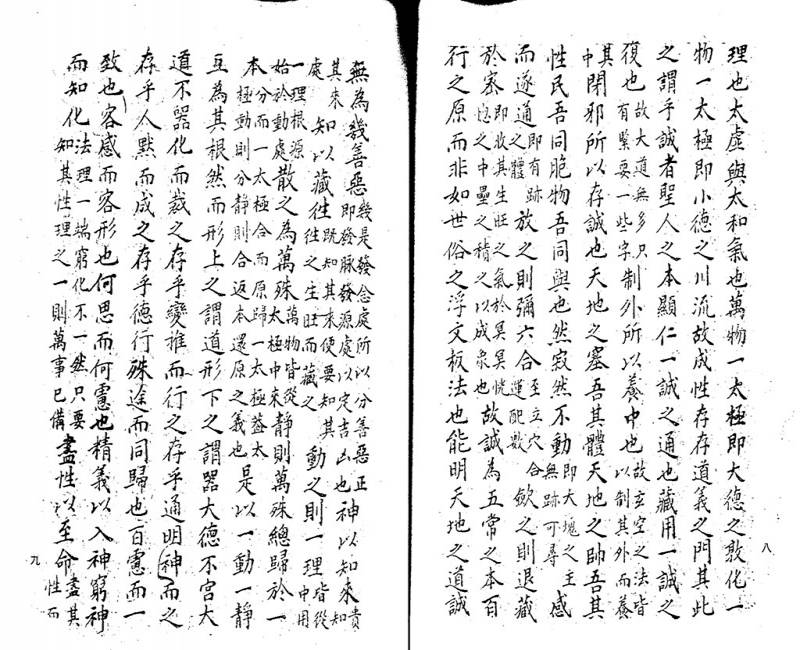 理也太虛與太和氣也萬物一太極即大德之敦化一
物一太極即小德之川流故成性存存道義之門其此
之謂乎誠者聖人之本顯仁一誠之通也藏用一誠之
復也故大道無多只有緊要一些字制外所以養中也故玄空之法皆以制其外而養
其中閉邪所以存誠也天地之塞吾其體天地之帥吾其
性民吾同胞物吾同與也然寂然不動即大塊之主無跡可尋感
而遂通即有跡之體放之則彌六合至立穴合運配數歛之則退藏
於密即收其生旺之氣於冥冥恍惚之中壘之積之以成象也故誠為五常之本百
行之原而非如世俗之浮文板法也能明天地之道誠
八
無為幾善惡幾是發念處所以分善惡正即發脉發源處以定吉凶也神以知來貴知
其來處知以藏往既知其來便要知其往之生旺而藏之動之則一理皆從中用
一理根源始於動處散之為萬殊萬物皆從太極中來靜則萬殊總歸於一
本分而一太極合而原歸一太極蓋太極動則分靜則合返本還原之義也是以一動一靜
互為其根然而形上之謂道形下之謂器大德不宫大
道不器化而裁之存乎變推而行之存乎通明神而之
存乎人默而成之存乎德行殊途而同歸也百慮而一
致也容感而容形也何思而何慮也精義以入神窮神
而知化法理一端窮化不一然只要知其性理之一則萬事已備盡性以至命盡其性而
九